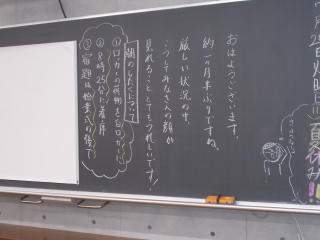 月25日(火)
夏休み!!
おはようございます。
約一ヶ月半ぶりですね。
厳しい状況の中、
こうしてみなさんの顔が
見れること、とてもうれしいです!
朝のしたくについて
①ロッカーの荷物を自ロッカーに
②8時25分に着席
③宿題は始業式の後で